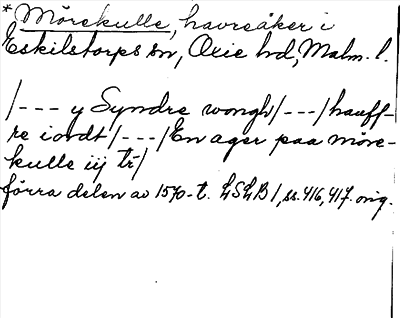 * Mörekulle, havreåker i
Eskilstorps sn, Oxie hd, Malm. l.
/--- y Syndre wongh/---/hauff-
re iordt/---/En ager paa möre-
kulle iij tr/
förra delen av 1570-t. LSLB 1, ss. 416, 417. orig.